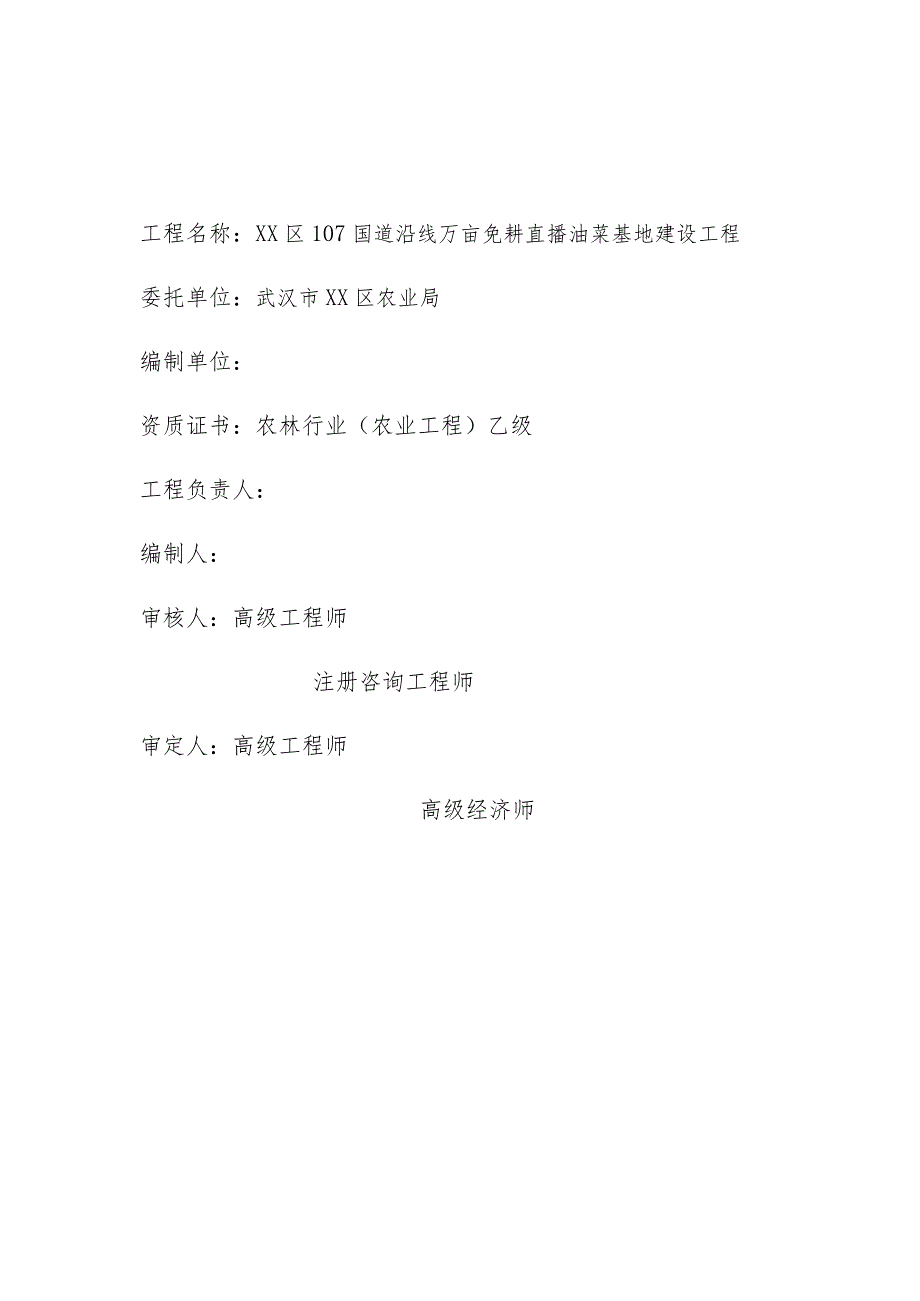 工程名称：XX 区 107 国道沿线万亩免耕直播油菜基地建设工程
委托单位：武汉市 XX 区农业局
编制单位：
资质证书：农林行业（农业工程）乙级
工程负责人：
编制人：
审核人：高级工程师
注册咨询工程师
审定人：高级工程师
高级经济师